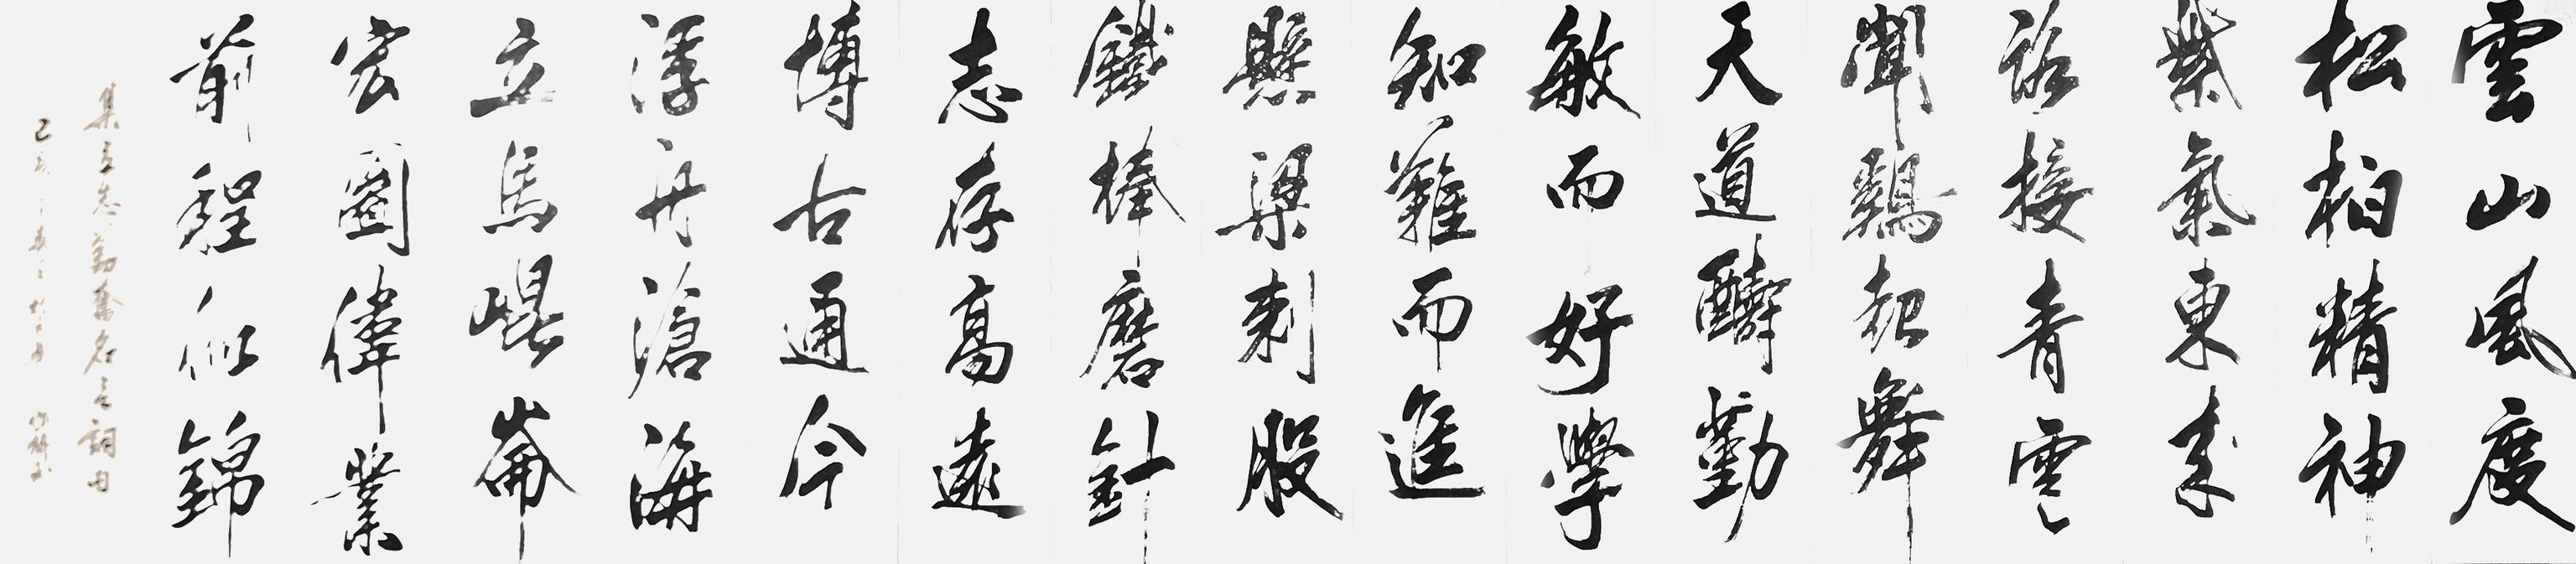 雲山風度
松柏精神
紫氣東來
路接青雲
聞鷄起舞
天道酬勤
敏而好學
知難而進
懸梁刺股
鐵棒磨針
志存高遠
博古通今
浮舟滄海
立馬崐崙
宏圖偉業
前程似錦
集立志勤奮名言詞句
己亥